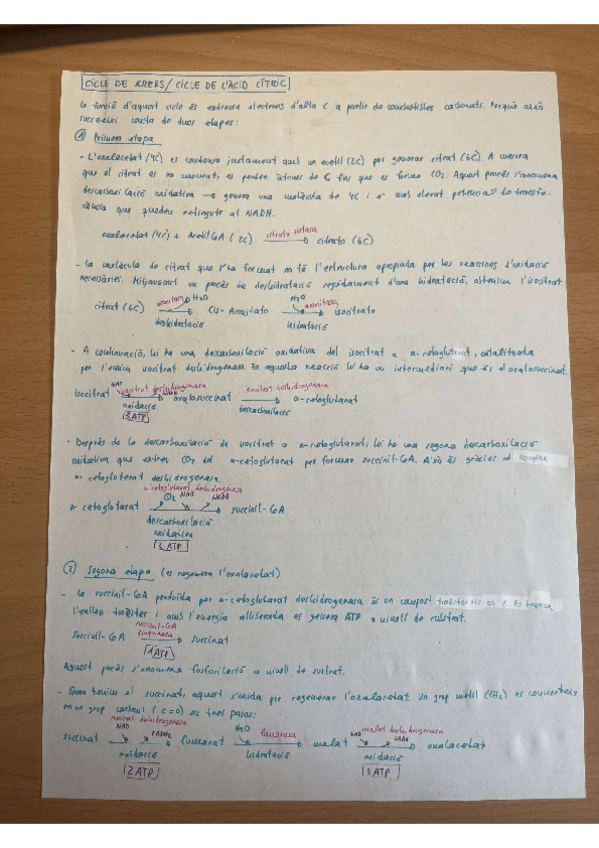 CICLE DE KREBS / CICLE DE L'ÀCID CÍTRIC
La funció d'aquest cicle és extreure electrons d'alta E a partir de combustibles carbonats. Perquè això
succeeixi consta de dues etapes:
① Primera etapa
- L'oxalacetat (4C) es condensa juntament amb un acetil (2C) per generar citrat (6C). A mesura
que el citrat es va movent, es perden àtoms de C fins que es forma CO2. Aquest procés s'anomena
descarboxilació oxidativa → genera una molècula de 4C i e- amb elevat potencial de transfe-
rència que queden retinguts al NADH.
citrato sintasa
oxalacetat (4C) + Acetil CoA (2C) → citrato (6C)
- La molècula de citrat que s'ha format no té l'estructura apropiada per les reaccions d'oxidació
necessàries. Mitjançant un procés de deshidratació seguidament d'una hidratació, obtenim l'isocitrat.
aconitasa H2O H2O aconitasa
citrat (6C) → Cis-Aconitato → isocitrato
deshidratació hidratació
- A continuació, hi ha una descarboxilació oxidativa del isocitrat a α-cetoglutarat, catalitzada
per l'enzim isocitrat deshidrogenasa. En aquesta reacció hi ha un intermediari que és el oxalosuccinat.
NAD isocitrat deshidrogenasa NADH isocitrat deshidrogenasa
isocitrat → oxalosuccinat → α-cetoglutarat
oxidació descarboxilació
3 ATP
- Després de la descarboxilació de isocitrat a α-cetoglutarat, hi ha una segona descarboxilació
oxidativa que extreu CO2 del α-cetoglutarat per formar succinil-CoA. Això és gràcies al complex
α-cetoglutarat deshidrogenasa.
α-cetoglutarat deshidrogenasa
CO2 NAD NADH
α-cetoglutarat → succinil-CoA
descarboxilació
oxidativa
3 ATP
② Segona etapa (es regenera l'oxalacetat)
- La succinil-CoA produïda per α-cetoglutarat deshidrogenasa és un compost tioèster ric en E. Es trenca
l'enllaç tioèster i amb l'energia alliberada es genera ATP a nivell de substrat.
succinil-CoA
sintetasa
succinil-CoA → succinat
1 ATP
Aquest procés s'anomena fosforilació a nivell de sustrat.
- Quan tenim el succinat, aquest s'oxida per regenerar l'oxalacetat. Un grup metil (CH2) es converteix
en un grup carbonil (C=O) en tres passos:
succinat deshidrogenasa H2O fumarasa malat deshidrogenasa
NAD FADH2 NAD NADH
succinat → fumarat → malat → oxalacetat
oxidació hidratació oxidació
2 ATP 3 ATP